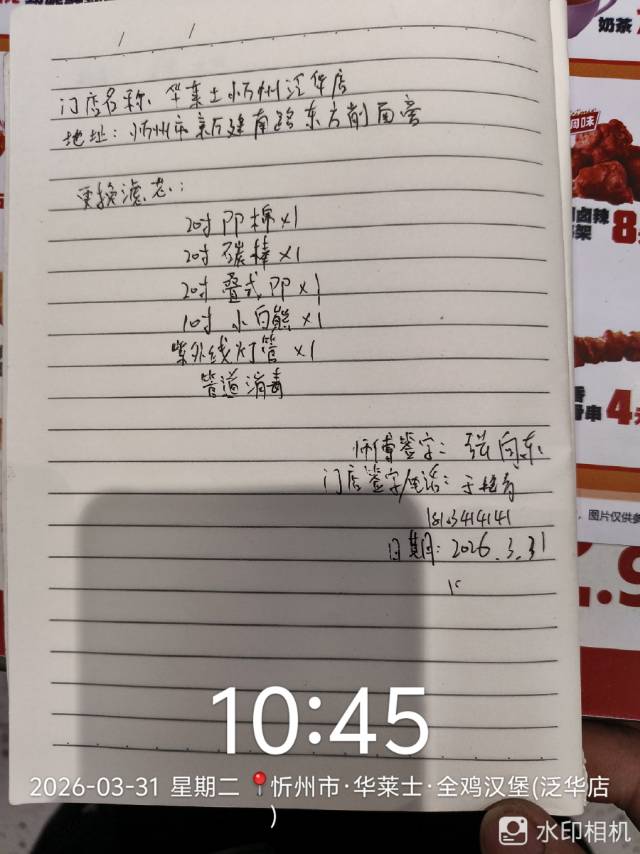 门店名称：华莱士忻州泛华店
地址：忻州市新建南路东方削面旁
更换滤芯：
20吋PP棉×1
20吋碳棒×1
20吋叠式PP×1
10吋小白熊×1
紫外线灯管×1
管道消毒
师傅签字：张向东
门店签字/电话：于
日期：2026.3.31
10:45
2026-03-31 星期二 忻州市·华莱士·全鸡汉堡(泛华店
)
水印相机
奶茶
卤辣
8
串 4元
图片仅供参